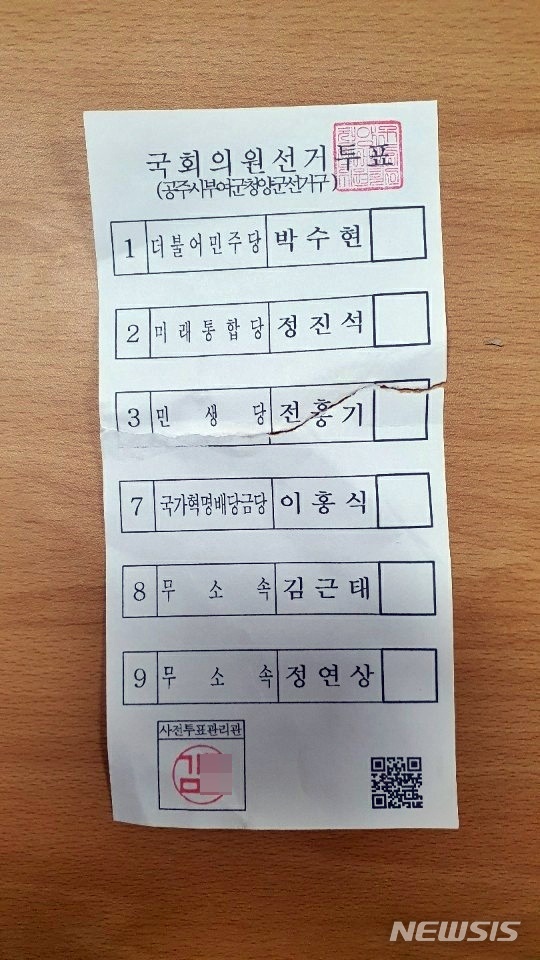 국회의원선거투표
(공주시부여군청양군선거구)
1 더불어민주당 박수현
2 미래통합당 정진석
3 민생당 전홍기
7 국가혁명배당금당 이홍식
8 무소속 김근태
9 무소속 정연상
사전투표관리관
김
NEWSIS